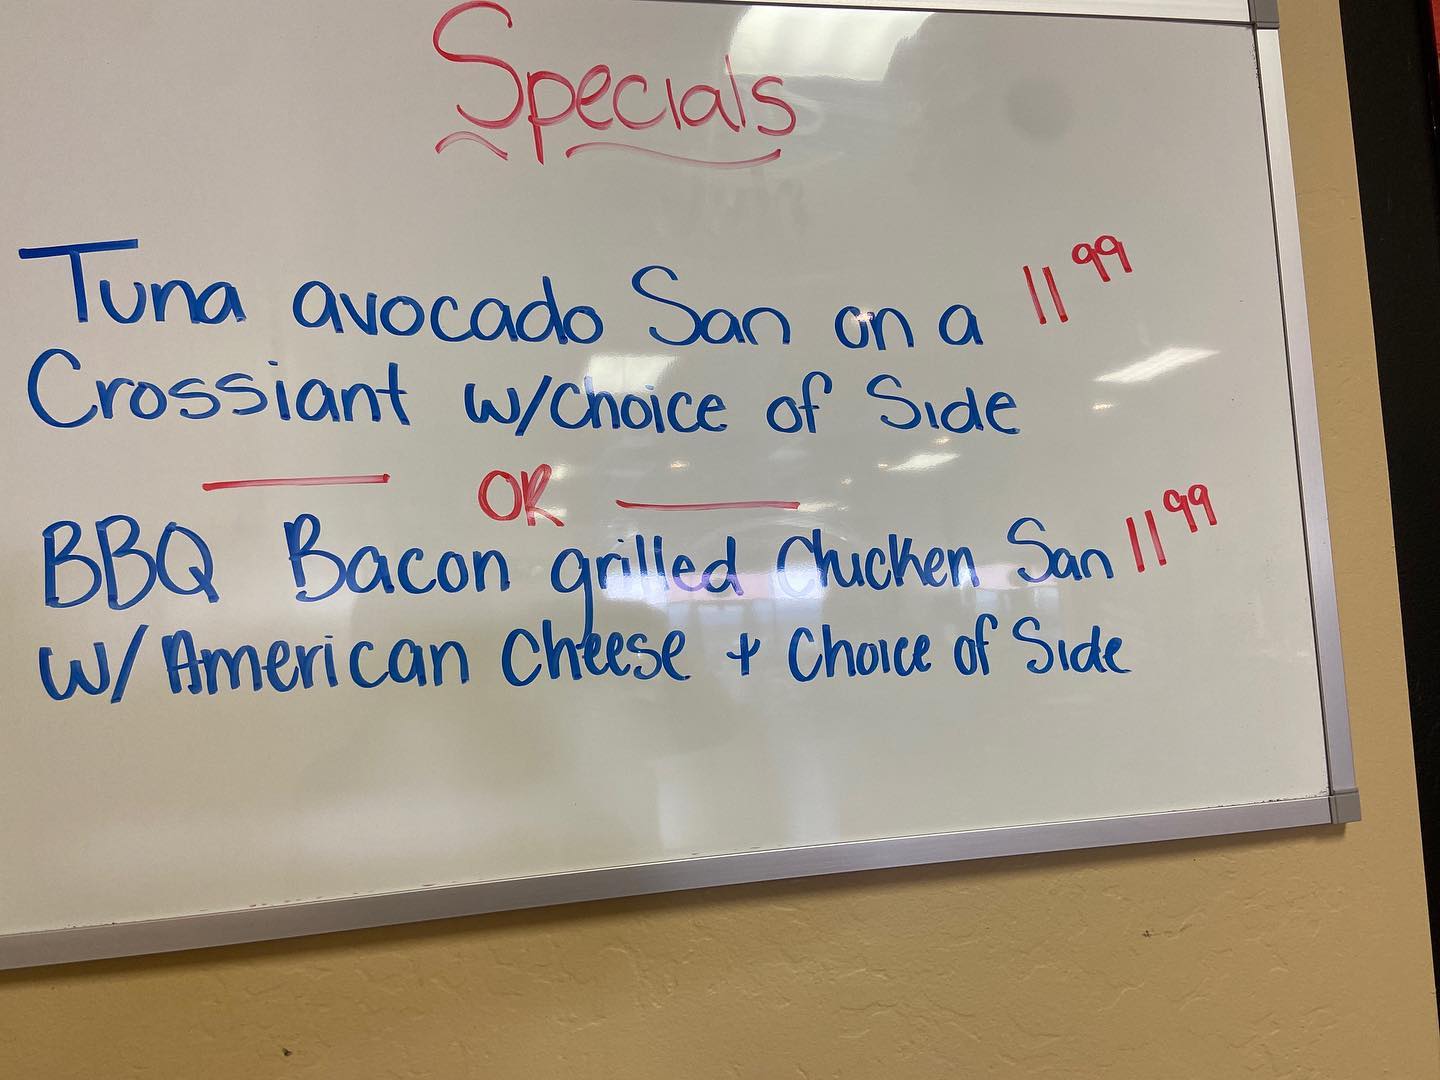 Specials
Tuna avocado San on a 11 99
Crossiant w/choice of Side
OR
BBQ Bacon grilled Chicken San 11 99
w/ American Cheese + Choice of Side